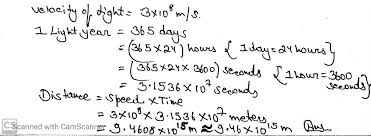 velocity of light = 3×10⁸ m/s.
1 Light year = 365 days
= (365×24) hours { 1 day = 24 hours}
= (365×24×3600) seconds { 1 hour = 3600 seconds}
= 3.1536×10⁷ seconds
Distance = speed × Time
= 3×10⁸ × 3.1536×10⁷ meters
= 9.4608×10¹⁵ m ≈ 9.46×10¹⁵ m Ans
CS Scanned with CamScanner